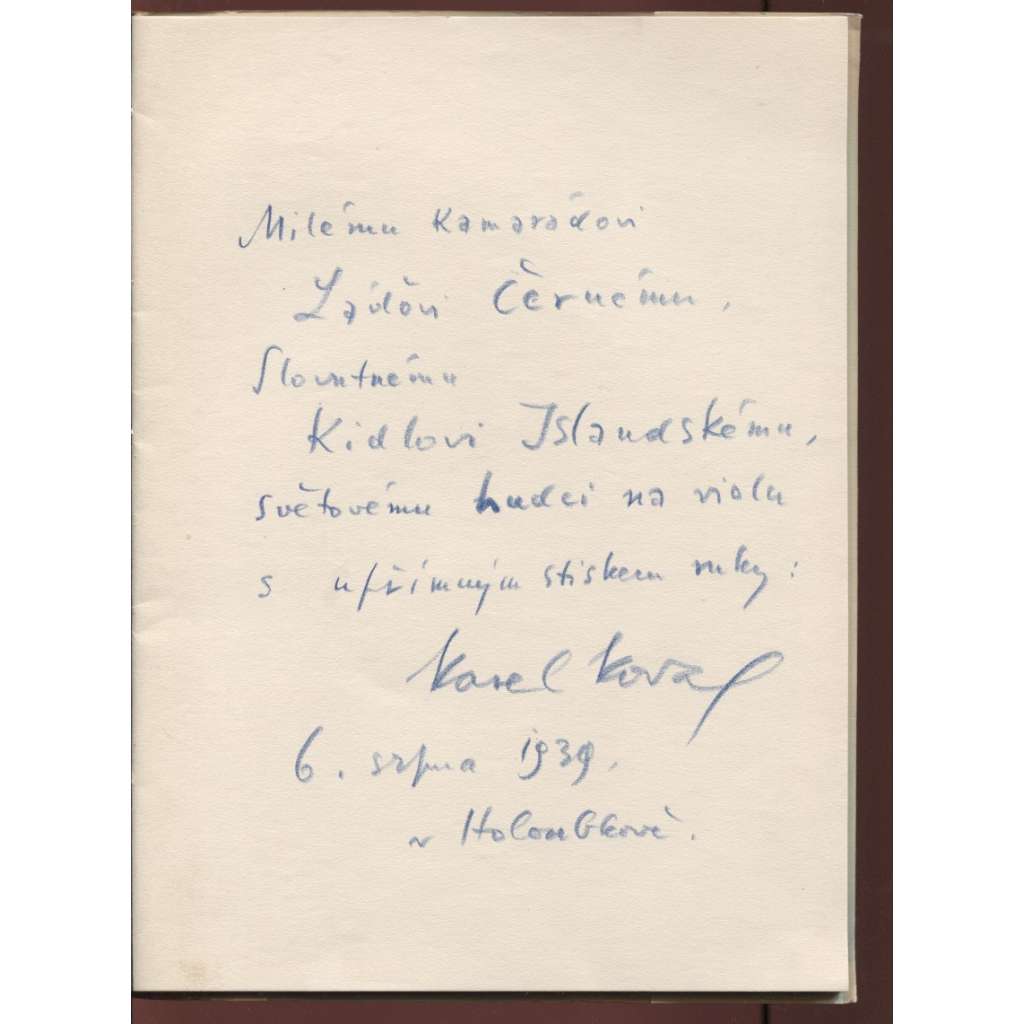 Milému Kamarádovi
Láďovi Černému,
Slovutnému
Kidlovi Islandskému,
světovému hudci na violu
s upřímným stiskem ruky:
Karel Koval
6. srpna 1939.
v Holoubkově.